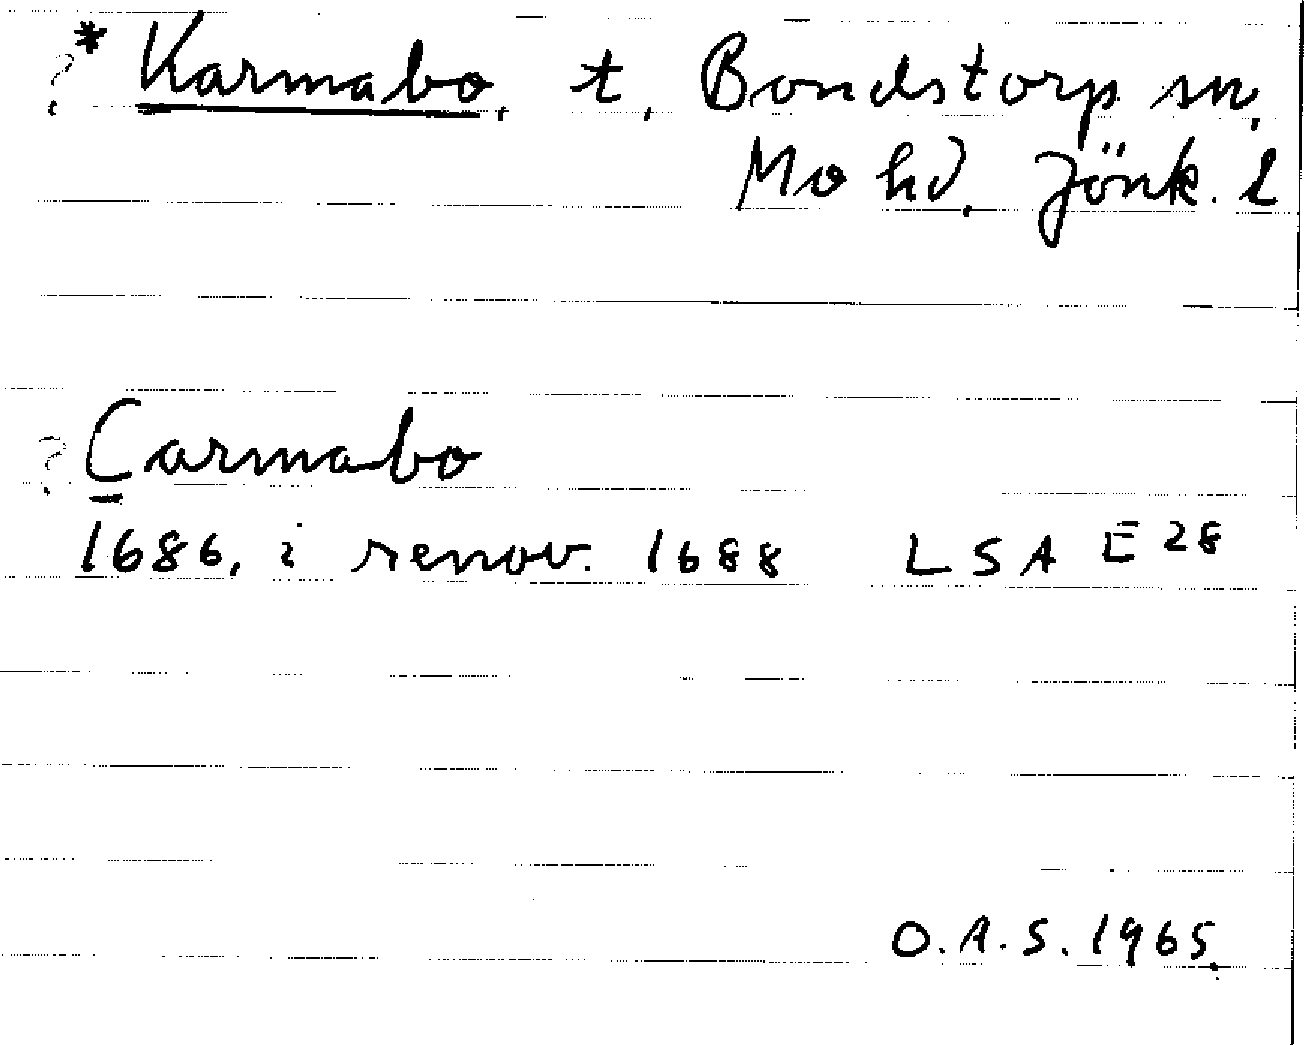 ?* Karmabo, t, Bondstorp sn,
Mo hd, Jönk. l
? Carmabo
1686, i renov. 1688 LSA E 28
O.A.S. 1965.